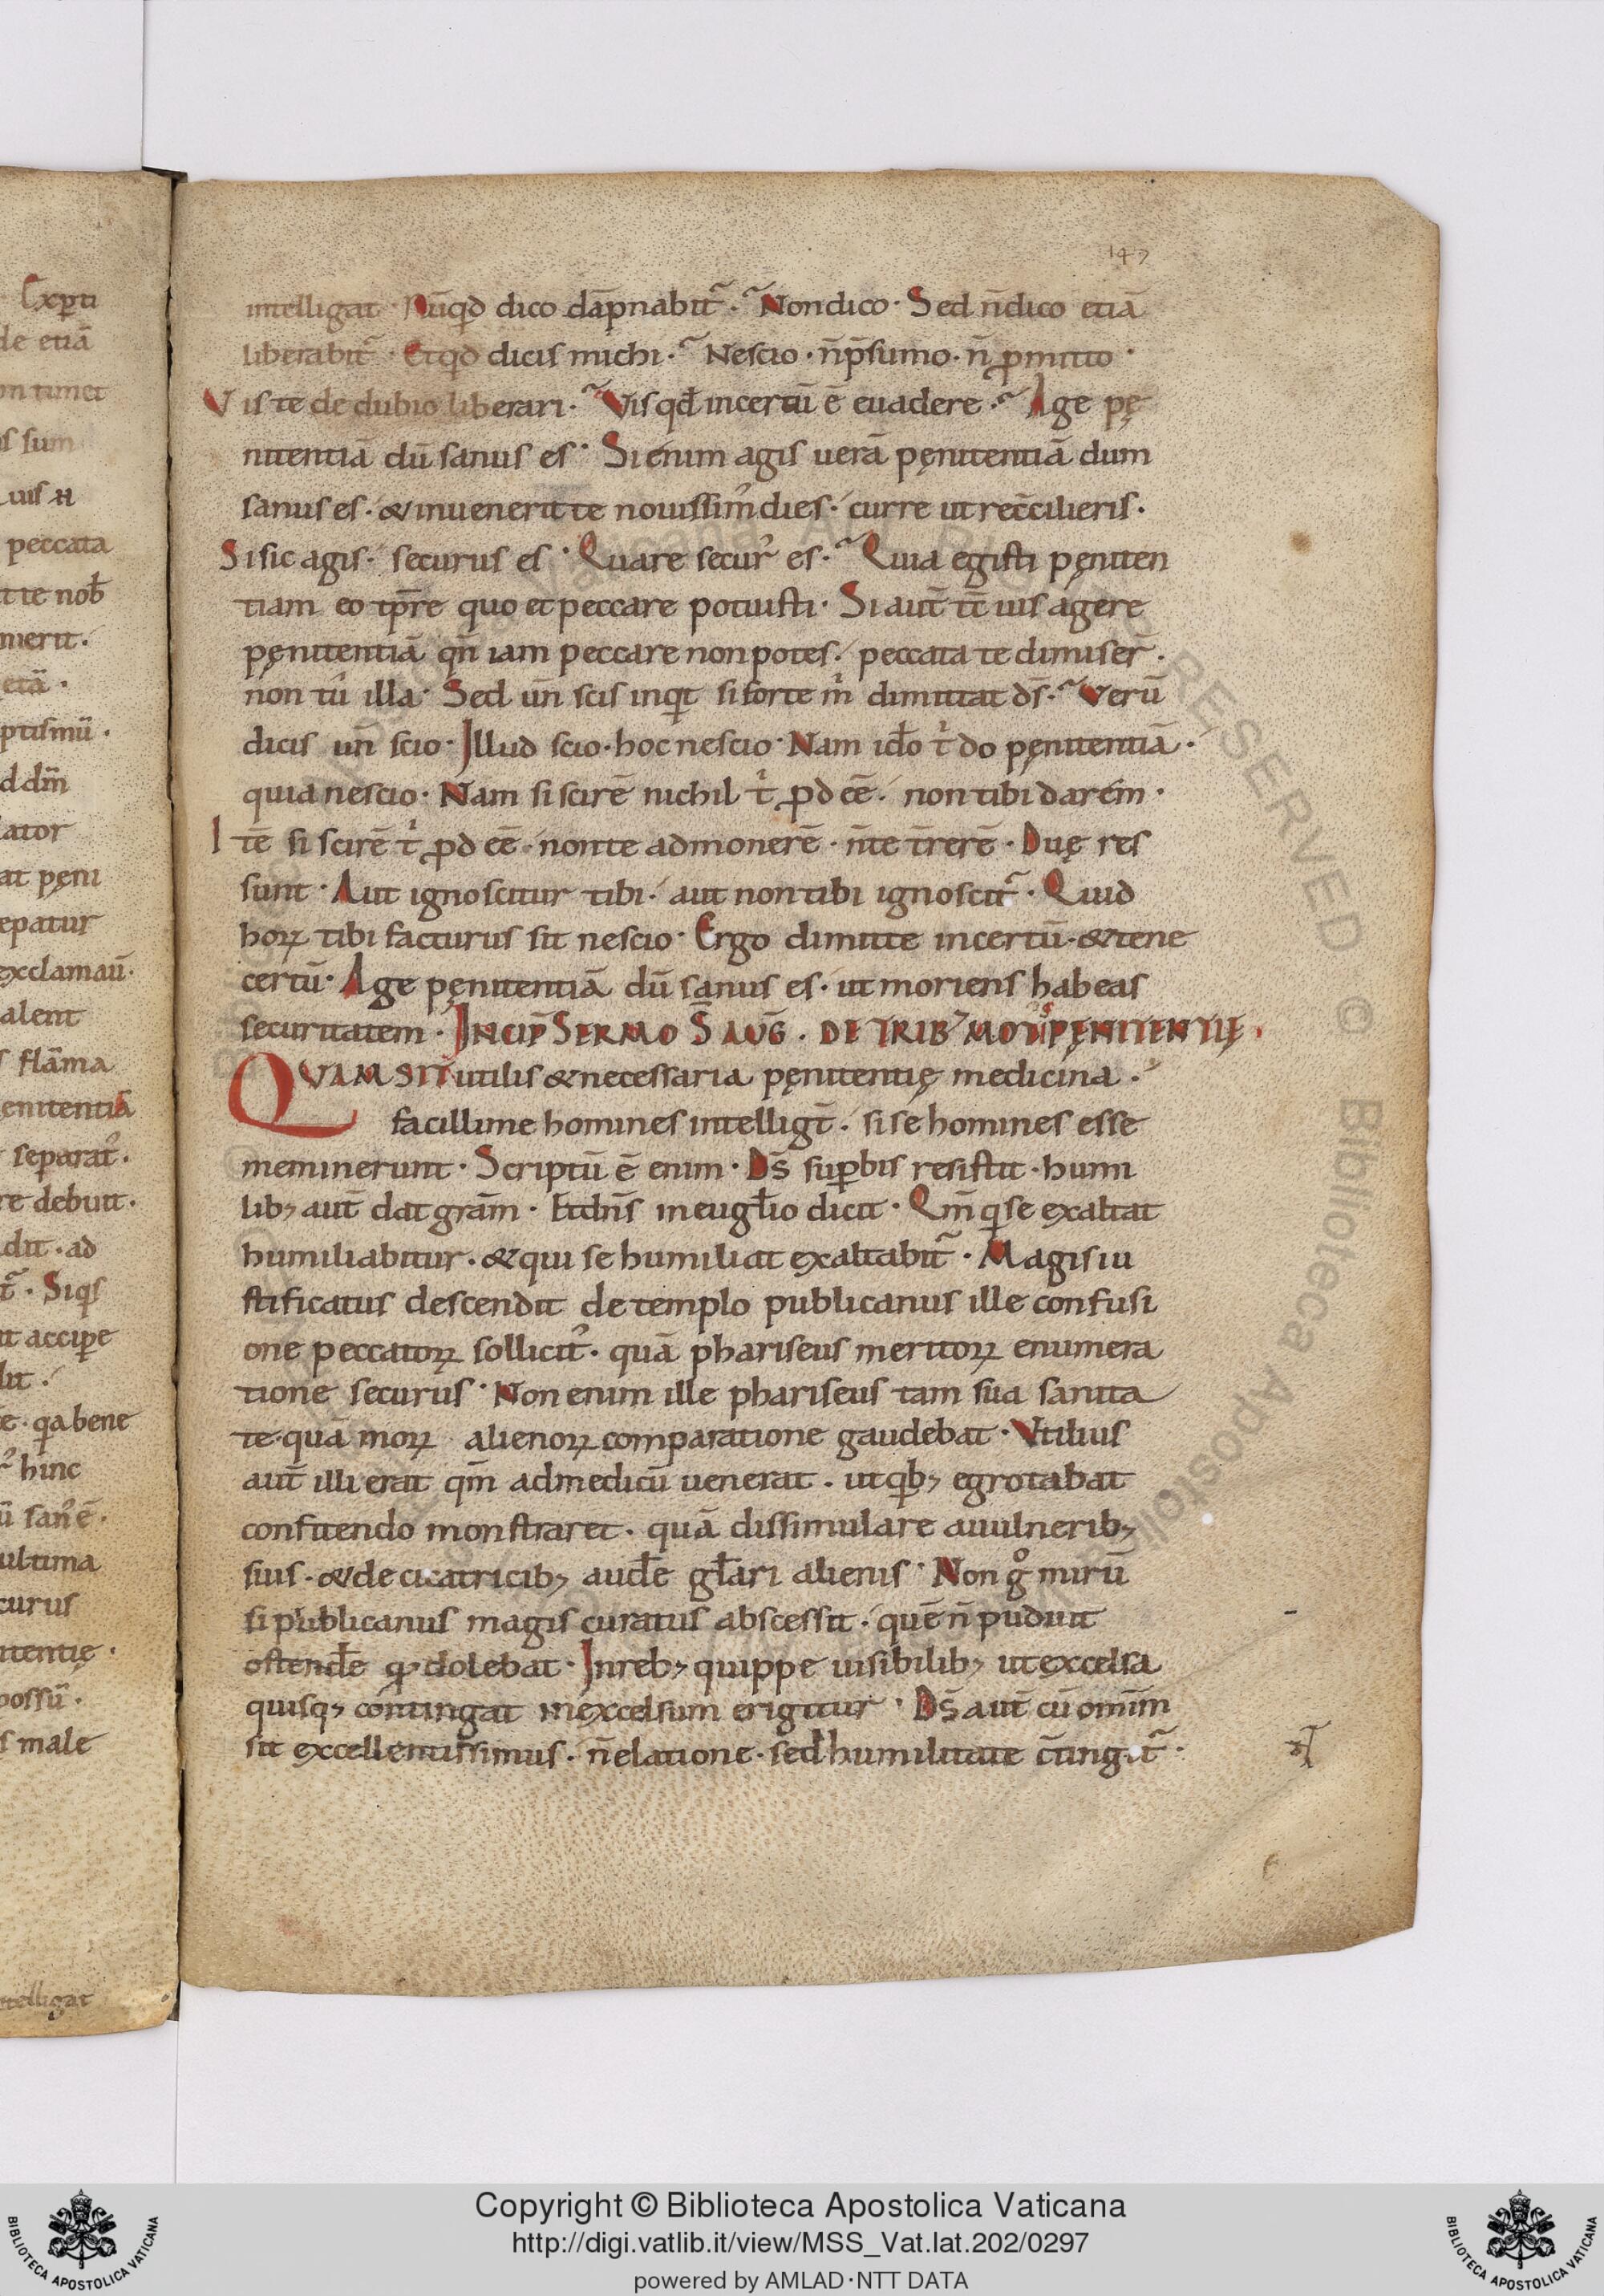 147
intelligat · Nūqd dico dāpnabit᷑ · Non dico · Sed n̄ dico etiā
liberabit᷑ · Et qd dicis michi · Nescio · n̄ p̄sumo · n̄ ꝓmitto ·
Vis te de dubio liberari · Vis qđ incertū ē euadere · Age pę
nitentiā dū sanus es · Si enim agis uerā pęnitentiā dum
sanus es · & inuenerit te nouissim᷒ dies · curre ut recc̄ilieris ·
Si sic agis · securus es · Quare secur᷒ es · Quia egisti pęniten
tiam eo tp̄re quo et peccare potuisti · Si aut̄ tc̄ uis agere
pęnitentiā qn̄ iam peccare non potes · peccata te dimiser̄ ·
non tu᷒ illa · Sed un̄ scis inqͥt si forte mͥ dimittat ds̄ · Verū
dicis un̄ scio · Illud scio · hoc nescio · Nam iđo tͥ do pęnitentiā ·
quia nescio · Nam si scirē nichil tͥ ꝓdeē · non tibi darem ·
Itē si scirē tͥ ꝓdeē · non te admonerē · n̄ te t̄rerē · Duę res
sunt · Aut ignoscitur tibi · aut non tibi ignoscit᷑ · Quid
hoꝝ tibi facturus sit nescio · Ergo dimitte incertū · & tene
certū · Age pęnitentiā dū sanus es · ut moriens habeas
securitatem · INCIP̄ SERMO S̄ AUḠ · DE TRIB; MOD PĘNITENTIĘ ·
QVAM SIT utilis & necessaria pęnitentię medicina ·
facillime homines intelligt̄ · si se homines esse
meminerunt · Scriptū ē enim · Ds̄ suꝑbis resistit · humi
lib; aut̄ dat grām · Et dn̄s in eugl̄io dicit · Qm̄ qͥ se exaltat
humiliabitur · & qui se humiliat exaltabit᷑ · Magis iu
stificatus descendit de templo publicanus ille confusi
one peccatoꝝ sollicit᷒ · quā phariseus meritoꝝ enumera
tione securus · Non enim ille phariseus tam sua sanita
te · quā moꝝ alienoꝝ comparatione gaudebat · Vtilius
aut̄ illi erat qm̄ ad medicū uenerat · ut qͥb; egrotabat
confitendo monstraret · quā dissimulare a uulnerib;
suis · & de cicatricib; auđe gl̄ari alienis · Non gͦ mirū
si publicanus magis curatus abscessit · quē n̄ puduit
ostenđe qͩ dolebat · In reb; quippe uisibilib; ut excelsa
quisq; contingat in excelsum erigitur · Ds̄ aut̄ cū omīm
sit excellentissimus · n̄ elatione · sed humilitate c̄tingit᷑ ·
Exꝑti
de etiā
on timet
s sum
peccata
t te nob̄
nierit ·
etā ·
ptismū ·
d dm̄
lator
at pęni
epatur
exclamau᷒ ·
alent
s flāma
enitentiā
separat᷒ ·
re debuit ·
dit · ad
t᷑ · Siqͥs
it acciꝑe
lit ·
e · qa bene
hinc
ū san᷒ ē ·
ultima
curus
itentię ·
possū ·
s male
ntelligat
Copyright © Biblioteca Apostolica Vaticana
http://digi.vatlib.it/view/MSS_Vat.lat.202/0297
powered by AMLAD·NTT DATA
BIBLIOTECA APOSTOLICA VATICANA
BIBLIOTECA APOSTOLICA VATICANA